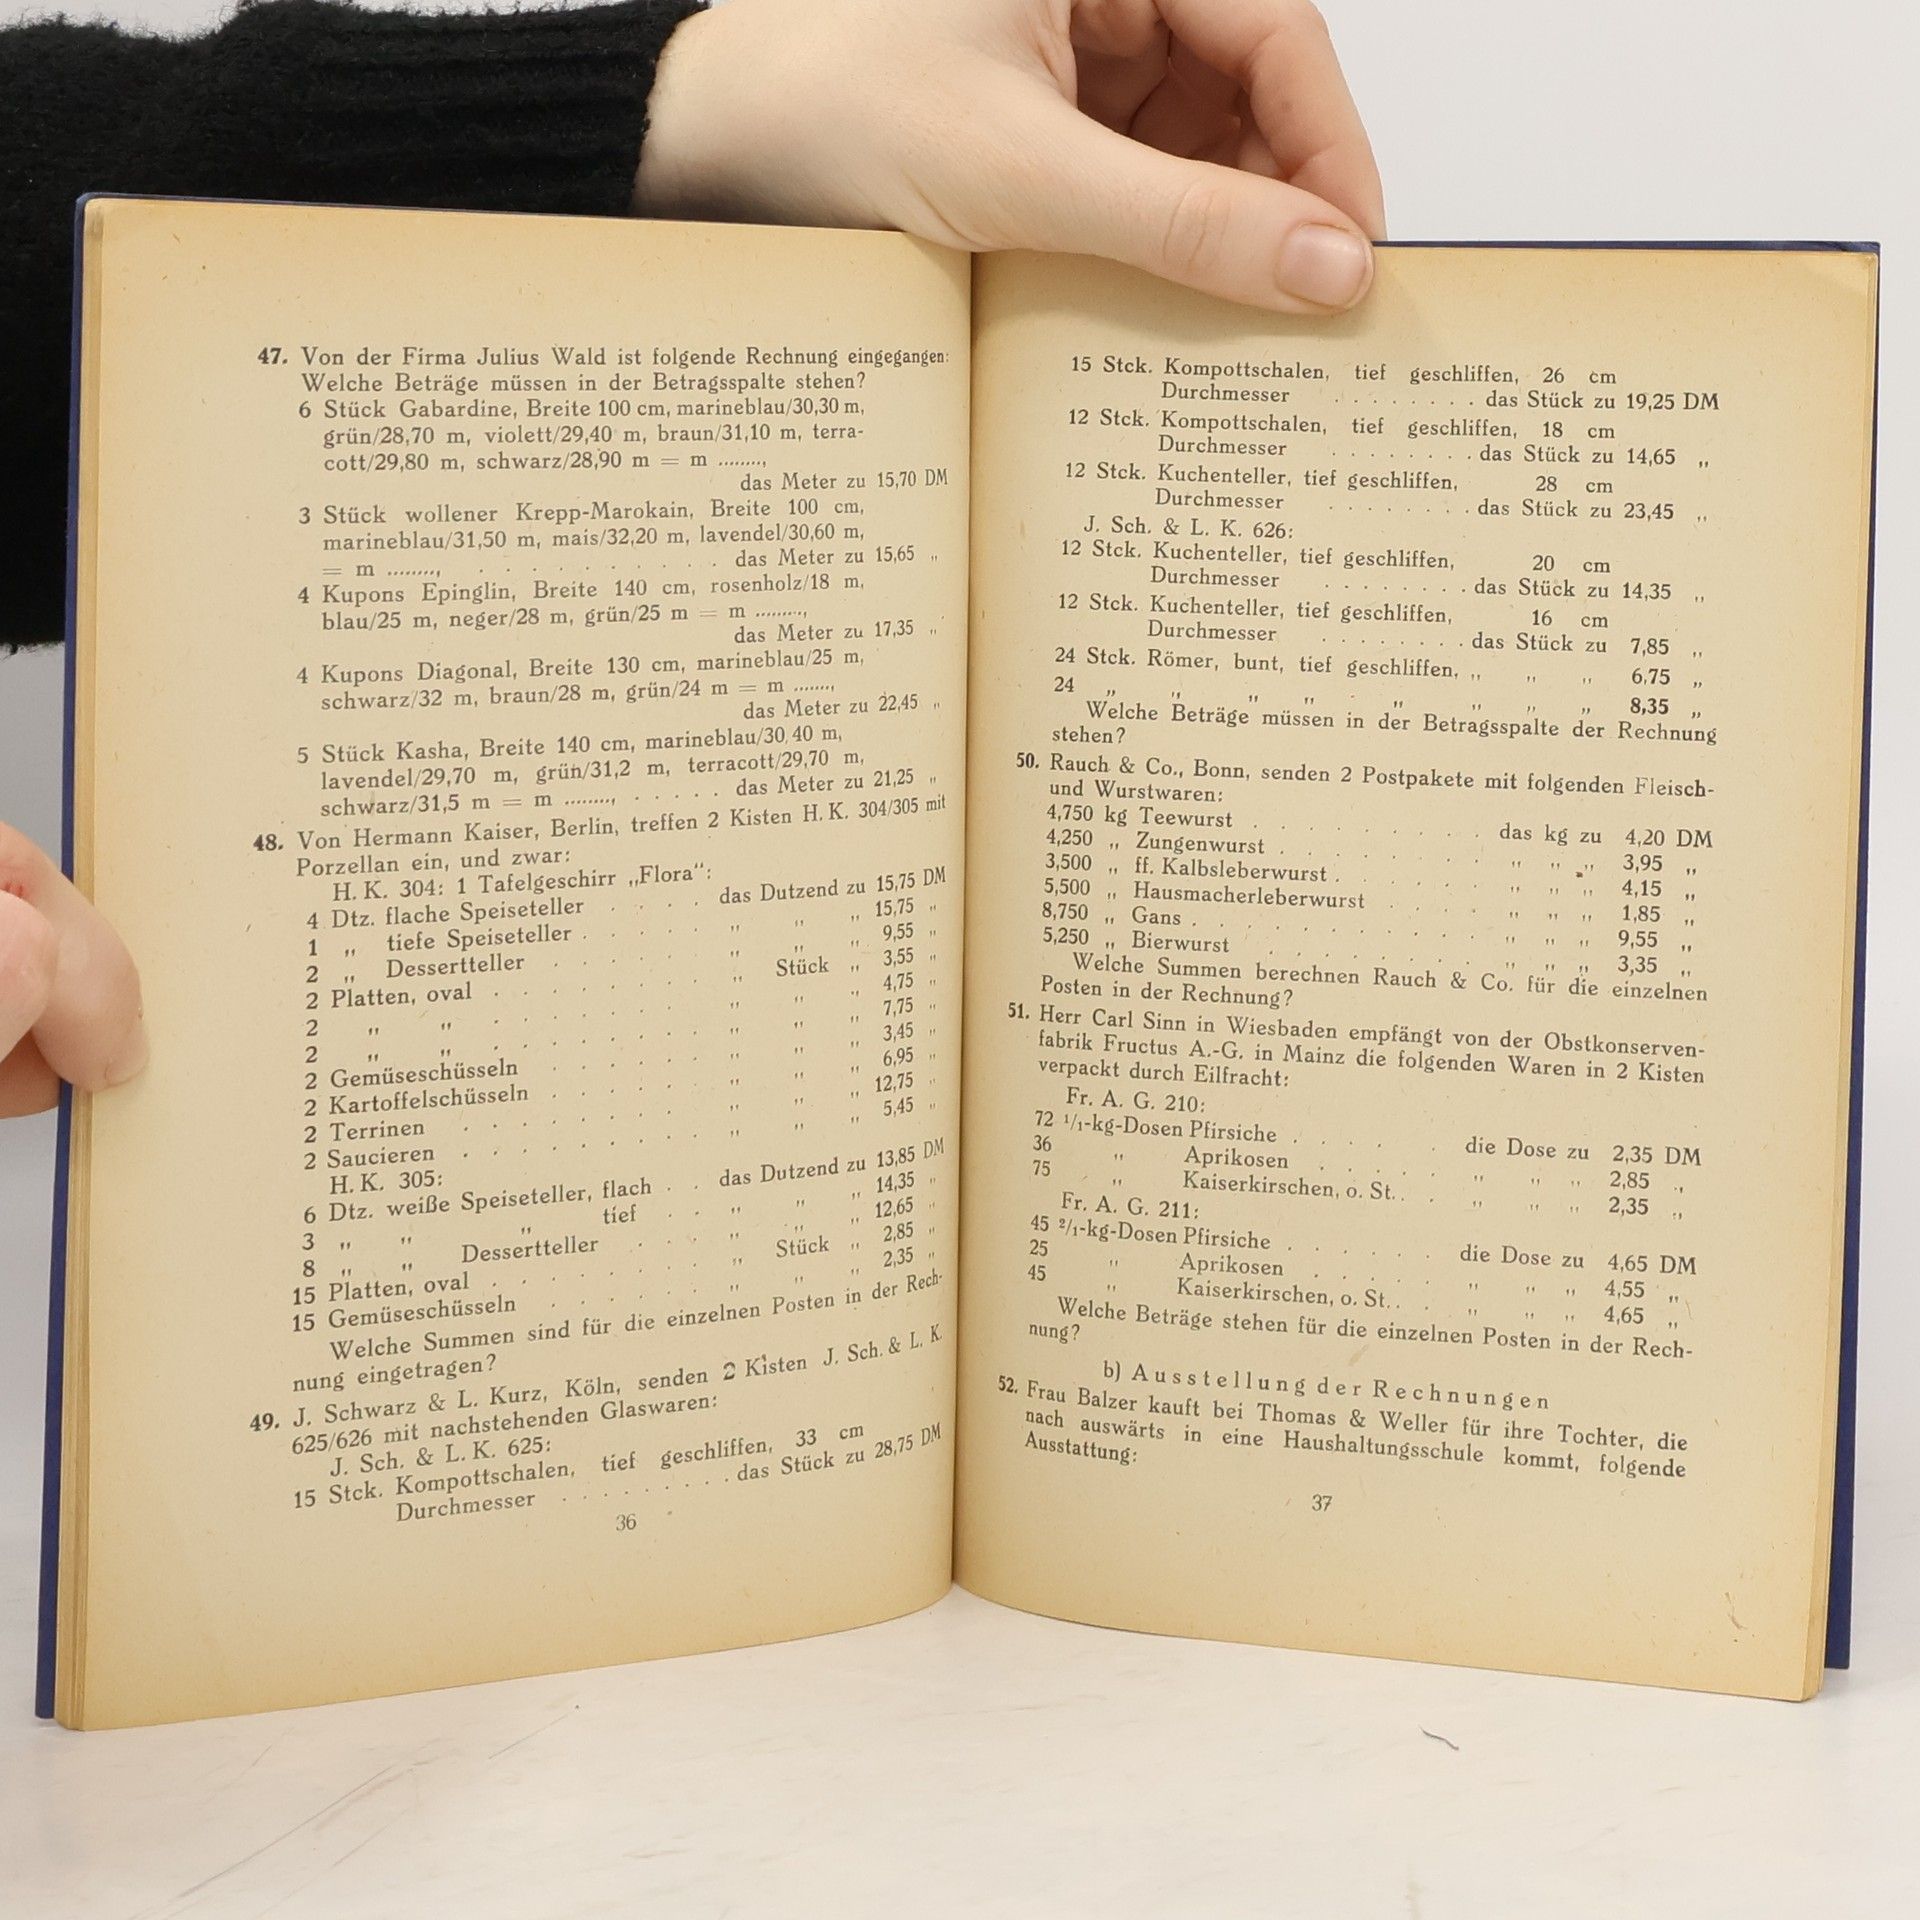 47. Von der Firma Julius Wald ist folgende Rechnung eingegangen:
Welche Beträge müssen in der Betragsspalte stehen?
6 Stück Gabardine, Breite 100 cm, marineblau/30,30 m,
grün/28,70 m, violett/29,40 m, braun/31,10 m, terra-
cott/29,80 m, schwarz/28,90 m = m ........,
das Meter zu 15,70 DM
3 Stück wollener Krepp-Marokain, Breite 100 cm,
marineblau/31,50 m, mais/32,20 m, lavendel/30,60 m,
= m ........, . . . . . . . . . . das Meter zu 15,65 „
4 Kupons Epinglin, Breite 140 cm, rosenholz/18 m,
blau/25 m, neger/28 m, grün/25 m = m ........,
das Meter zu 17,35 „
4 Kupons Diagonal, Breite 130 cm, marineblau/25 m,
schwarz/32 m, braun/28 m, grün/24 m = m ........,
das Meter zu 22,45 „
5 Stück Kasha, Breite 140 cm, marineblau/30,40 m,
lavendel/29,70 m, grün/31,2 m, terracott/29,70 m,
schwarz/31,5 m = m ........, . . . . . das Meter zu 21,25 „
48. Von Hermann Kaiser, Berlin, treffen 2 Kisten H. K. 304/305 mit
Porzellan ein, und zwar:
H. K. 304: 1 Tafelgeschirr „Flora“:
4 Dtz. flache Speiseteller . . . . das Dutzend zu 15,75 DM
1 „ tiefe Speiseteller . . . . . „ „ „ 15,75 „
2 „ Dessertteller . . . . . . „ „ „ 9,55 „
2 Platten, oval . . . . . . . . „ Stück „ 3,55 „
2 „ „ . . . . . . . . „ „ „ 4,75 „
2 „ „ . . . . . . . . „ „ „ 7,75 „
2 Gemüseschüsseln . . . . . . „ „ „ 3,45 „
2 Kartoffelschüsseln . . . . . . „ „ „ 6,95 „
2 Terrinen . . . . . . . . „ „ „ 12,75 „
2 Saucieren . . . . . . . . „ „ „ 5,45 „
H. K. 305:
6 Dtz. weiße Speiseteller, flach . . das Dutzend zu 13,85 DM
3 „ „ „ tief . . „ „ „ 14,35 „
8 „ „ Dessertteller . . . „ „ „ 12,65 „
15 Platten, oval . . . . . . . . „ Stück „ 2,85 „
15 Gemüseschüsseln . . . . . . „ „ „ 2,35 „
Welche Summen sind für die einzelnen Posten in der Rech-
nung eingetragen?
49. J. Schwarz & L. Kurz, Köln, senden 2 Kisten J. Sch. & L. K.
625/626 mit nachstehenden Glaswaren:
J. Sch. & L. K. 625:
15 Stck. Kompottschalen, tief geschliffen, 33 cm
Durchmesser . . . . . . . . . das Stück zu 28,75 DM
36
15 Stck. Kompottschalen, tief geschliffen, 26 cm
Durchmesser . . . . . . . . das Stück zu 19,25 DM
12 Stck. Kompottschalen, tief geschliffen, 18 cm
Durchmesser . . . . . . . . das Stück zu 14,65 „
12 Stck. Kuchenteller, tief geschliffen, 28 cm
Durchmesser . . . . . . . . das Stück zu 23,45 „
J. Sch. & L. K. 626:
12 Stck. Kuchenteller, tief geschliffen, 20 cm
Durchmesser . . . . . . . . das Stück zu 14,35 „
12 Stck. Kuchenteller, tief geschliffen, 16 cm
Durchmesser . . . . . . . . das Stück zu 7,85 „
24 Stck. Römer, bunt, tief geschliffen, „ „ „ 6,75 „
24 „ „ „ „ „ „ „ „ 8,35 „
Welche Beträge müssen in der Betragsspalte der Rechnung
stehen?
50. Rauch & Co., Bonn, senden 2 Postpakete mit folgenden Fleisch-
und Wurstwaren:
4,750 kg Teewurst . . . . . . . . . das kg zu 4,20 DM
4,250 „ Zungenwurst . . . . . . . . „ „ „ 3,95 „
3,500 „ ff. Kalbsleberwurst . . . . . . „ „ „ 4,15 „
5,500 „ Hausmacherleberwurst . . . . . „ „ „ 1,85 „
8,750 „ Gans . . . . . . . . . . „ „ „ 9,55 „
5,250 „ Bierwurst . . . . . . . . „ „ „ 3,35 „
Welche Summen berechnen Rauch & Co. für die einzelnen
Posten in der Rechnung?
51. Herr Carl Sinn in Wiesbaden empfängt von der Obstkonserven-
fabrik Fructus A.-G. in Mainz die folgenden Waren in 2 Kisten
verpackt durch Eilfracht:
Fr. A. G. 210:
72 1/1-kg-Dosen Pfirsiche . . . . . die Dose zu 2,35 DM
36 „ Aprikosen . . . . . „ „ „ 2,85 „
75 „ Kaiserkirschen, o. St. . . „ „ „ 2,35 „
Fr. A. G. 211:
45 2/1-kg-Dosen Pfirsiche . . . . . . die Dose zu 4,65 DM
25 „ Aprikosen . . . . . „ „ „ 4,55 „
45 „ Kaiserkirschen, o. St. . . „ „ „ 4,65 „
Welche Beträge stehen für die einzelnen Posten in der Rech-
nung?
b) Ausstellung der Rechnungen
52. Frau Balzer kauft bei Thomas & Weller für ihre Tochter, die
nach auswärts in eine Haushaltungsschule kommt, folgende
Ausstattung:
37